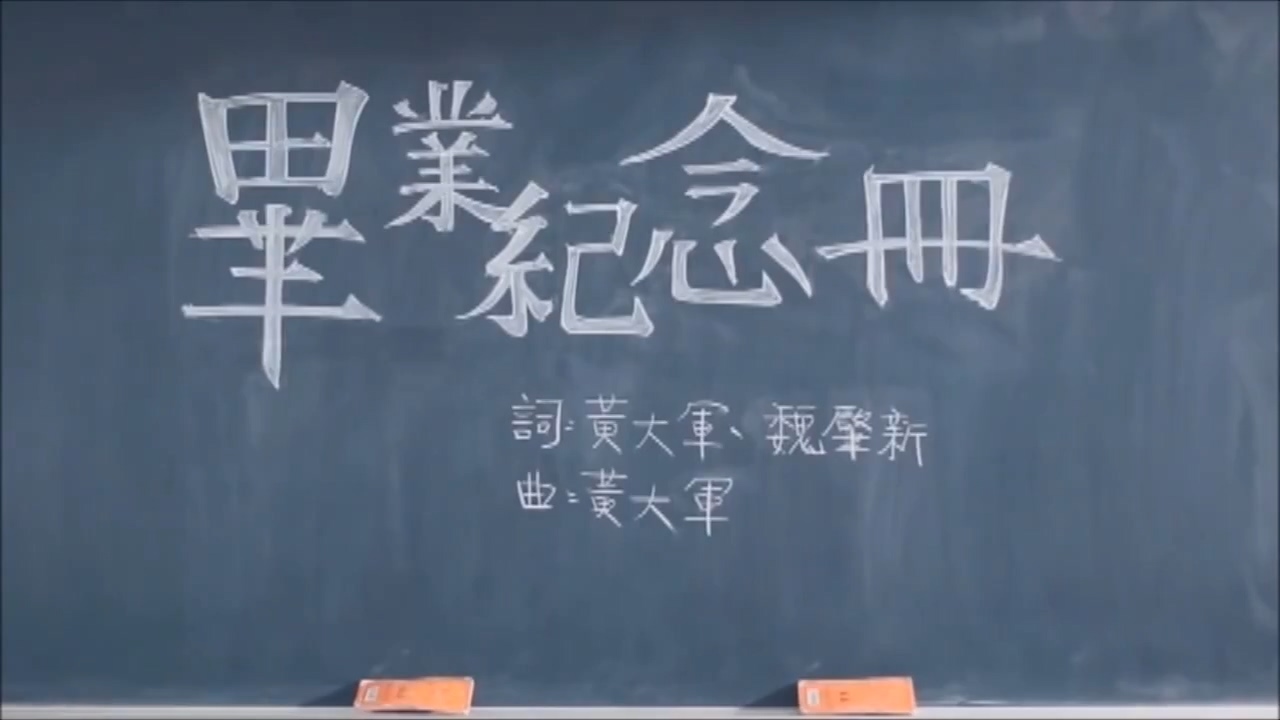 畢業紀念冊
詞：黃大軍、魏肇新
曲：黃大軍